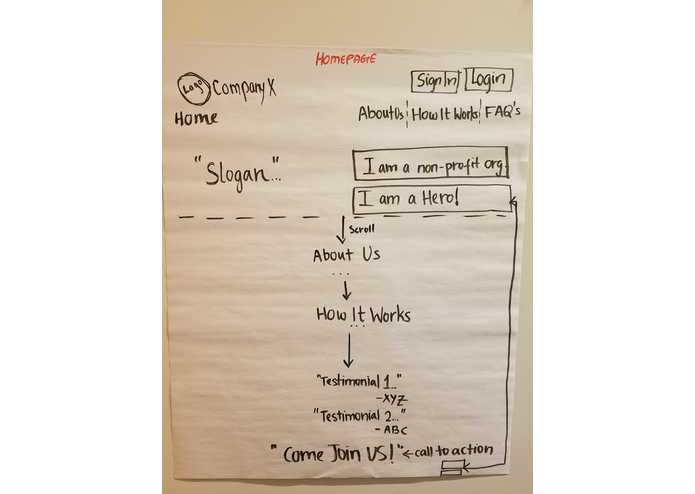 HOMEPAGE
Logo CompanyX Sign In Login
Home AboutUs How It Works FAQ's
"Slogan..." I am a non-profit org.
I am a Hero!
Scroll
About Us
...
How It Works
...
"Testimonial 1..."
-XYZ
"Testimonial 2..."
-ABC
"Come Join US!" ← call to action